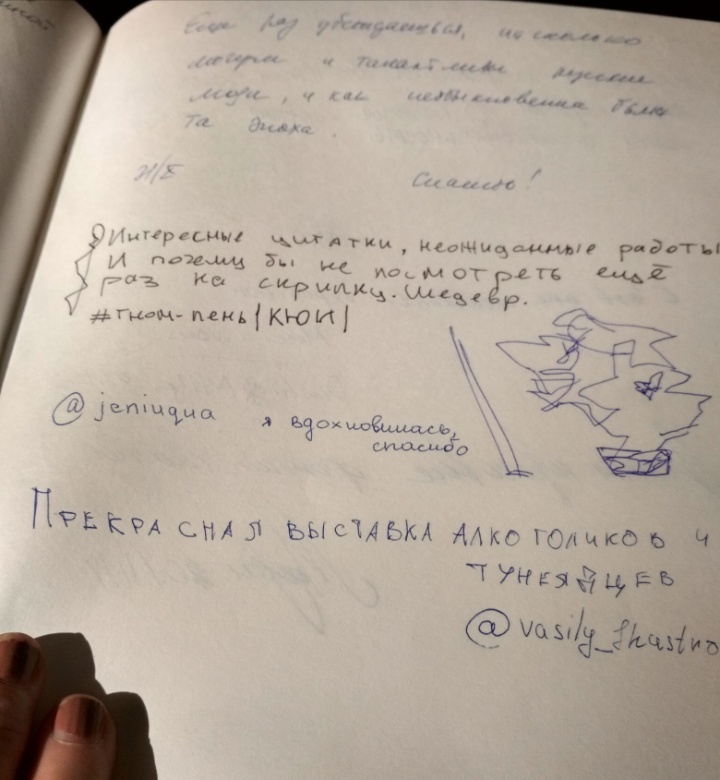 Еще раз убеждаешься, насколько
могучи и талантливы русские
люди, и как необыкновенна была
та эпоха.
Спасибо!
Интересные цитатки, неожиданные работы
И почему бы не посмотреть ещё
раз на скрипку. Шедевр.
#гном-пень|КЮИ|
@jeniuqua я вдохновилась,
спасибо
ПРЕКРАСНАЯ ВЫСТАВКА АЛКОГОЛИКОВ И
ТУНЕЯДЦЕВ
@vasily_